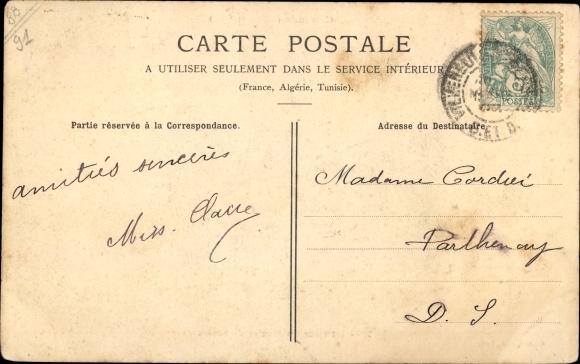 88
91
CARTE POSTALE
A UTILISER SEULEMENT DANS LE SERVICE INTÉRIEUR
(France, Algérie, Tunisie).
POSTES
S. ET O.
Partie réservée à la Correspondance.
Adresse du Destinataire.
amitiés sincères
Miss. Claire
Madame Cordiéi
Parthenay
D. S.